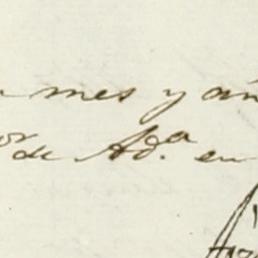 mes y añ
or de Ad.a en